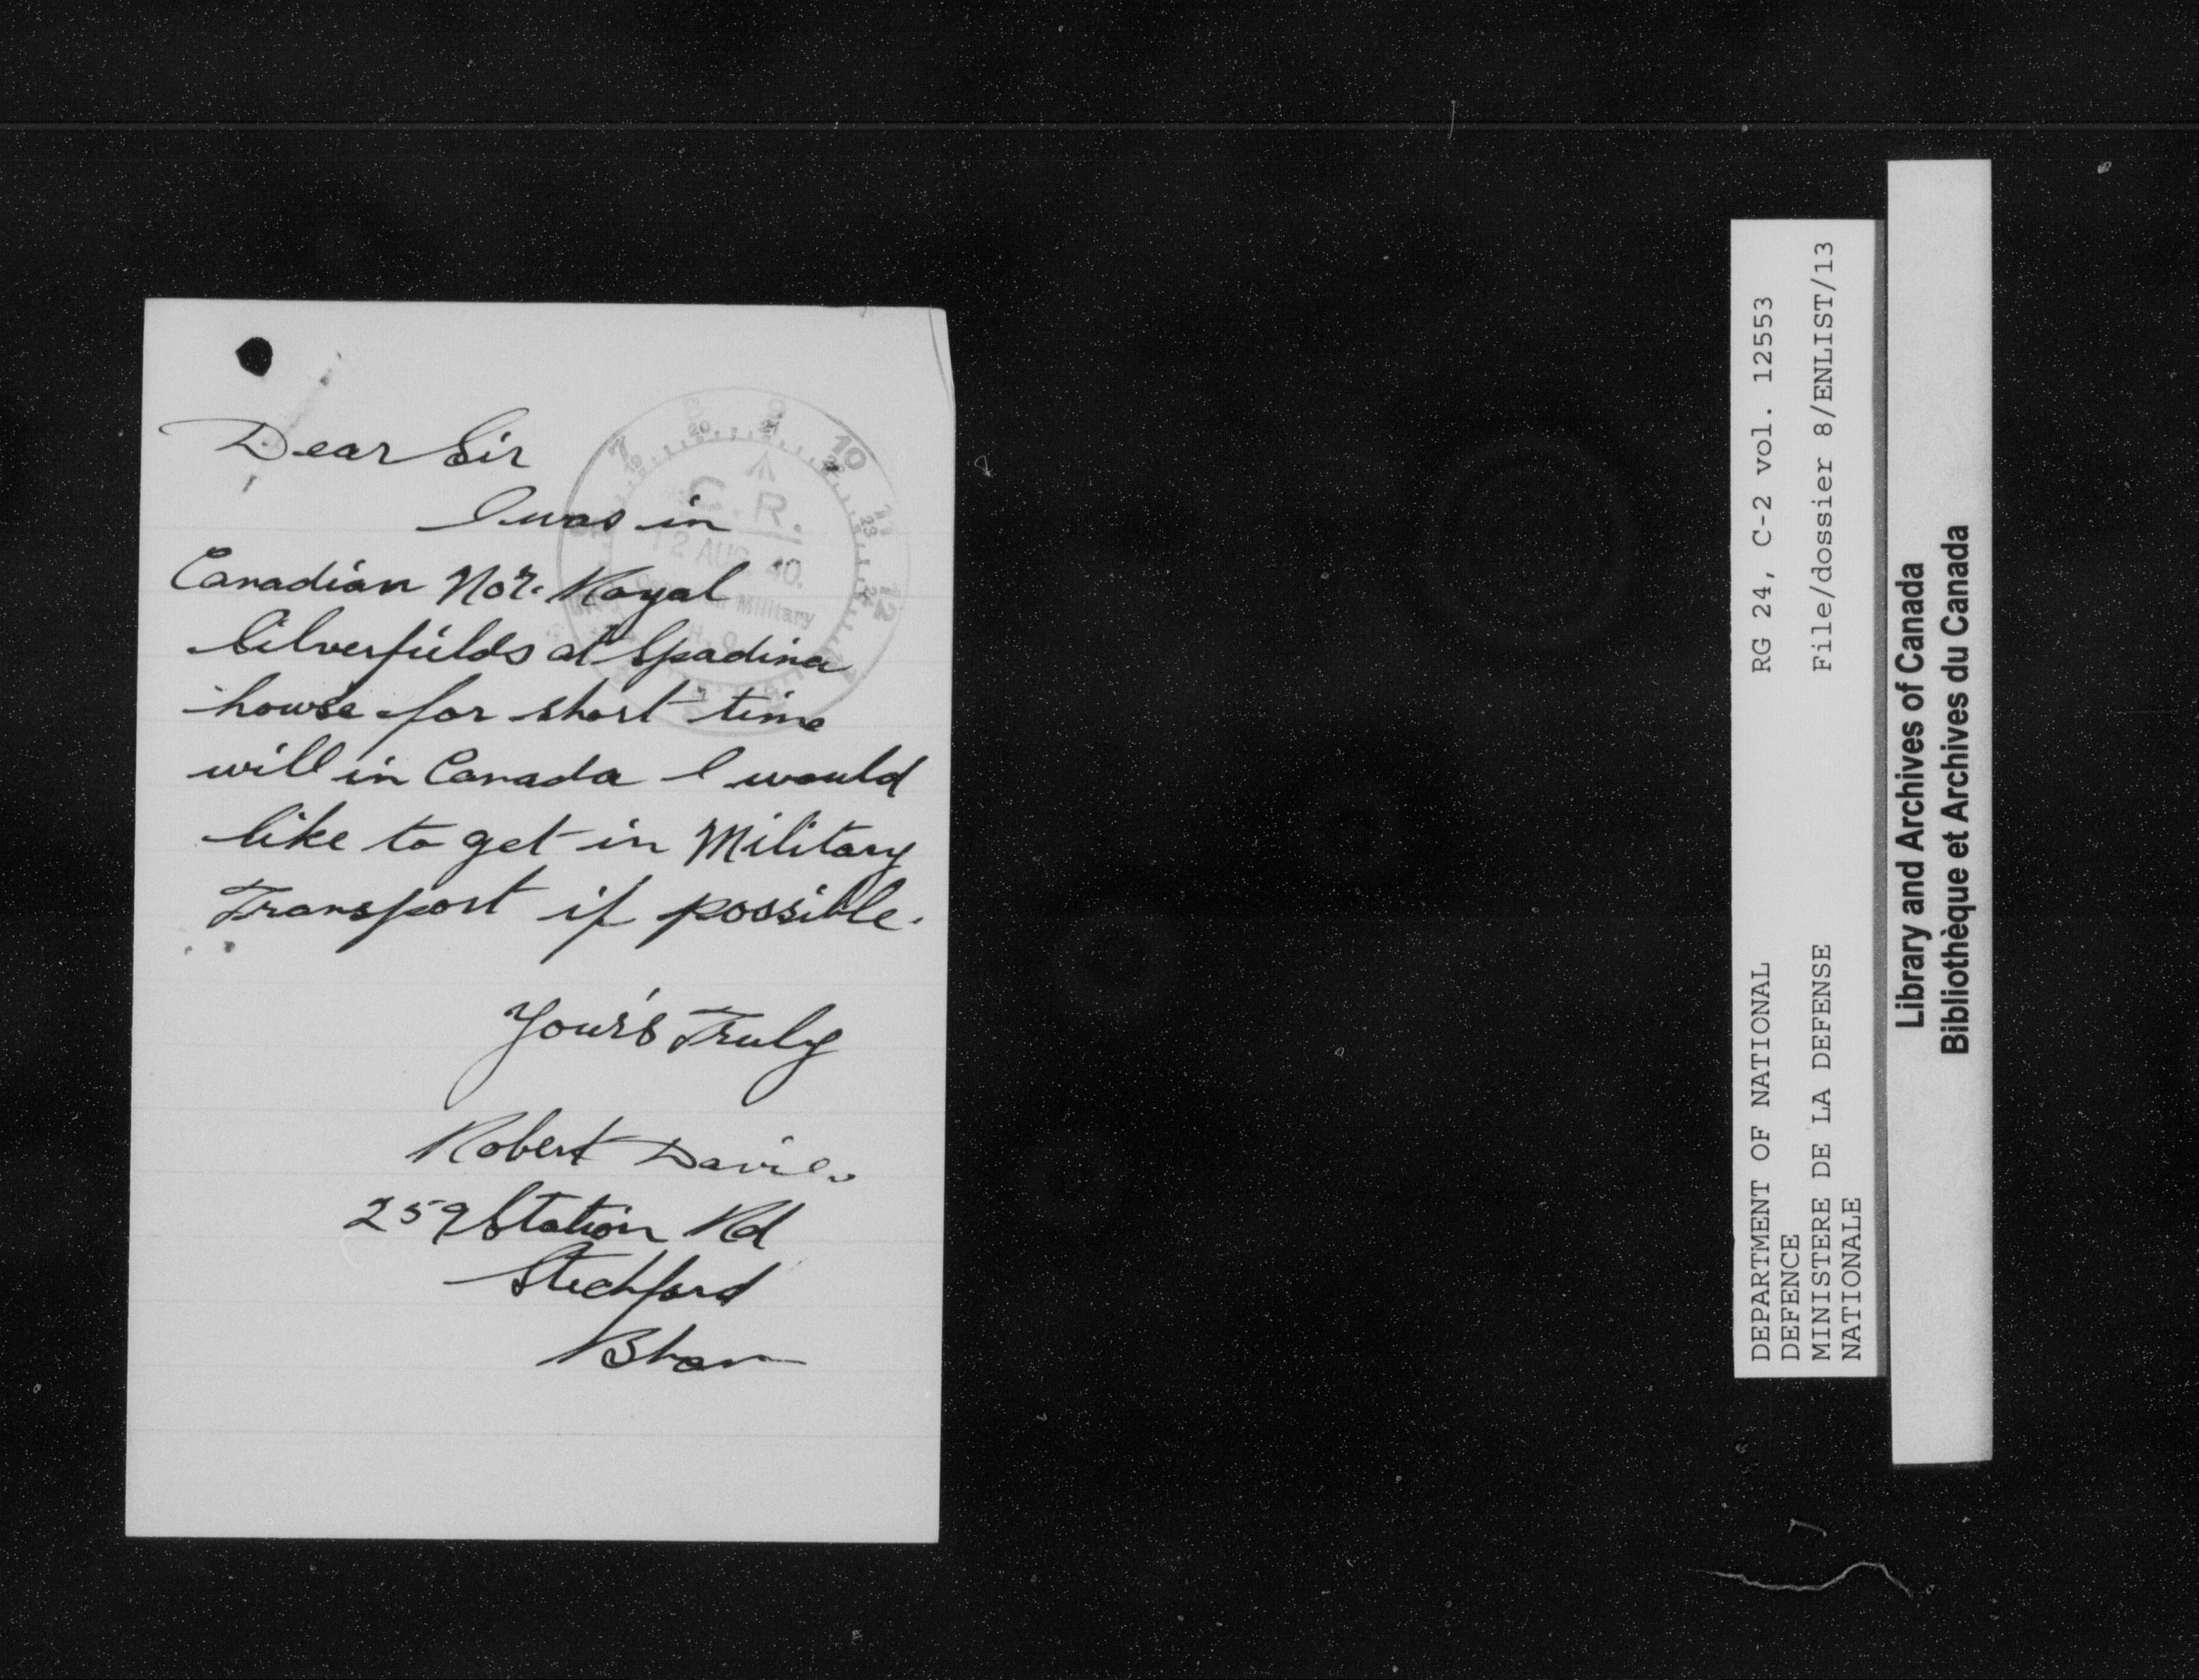 Dear Sir
I was in
Canadian No 2. Royal
Silverfields at Spadina
house for short time
will in Canada I would
like to get in Military
Transport if possible.
Your's Truly
Robert Davies
259 Station Rd
Stechford
Bham
7 8 9 10 11 12
19 20 21 22 23 24
C. R.
12 AUG. 40.
Canadian Military
H. Q.
RG 24, C-2 vol. 12553
File/dossier 8/ENLIST/13
DEPARTMENT OF NATIONAL
DEFENCE
MINISTERE DE LA DEFENSE
NATIONALE
Library and Archives of Canada
Bibliothèque et Archives du Canada